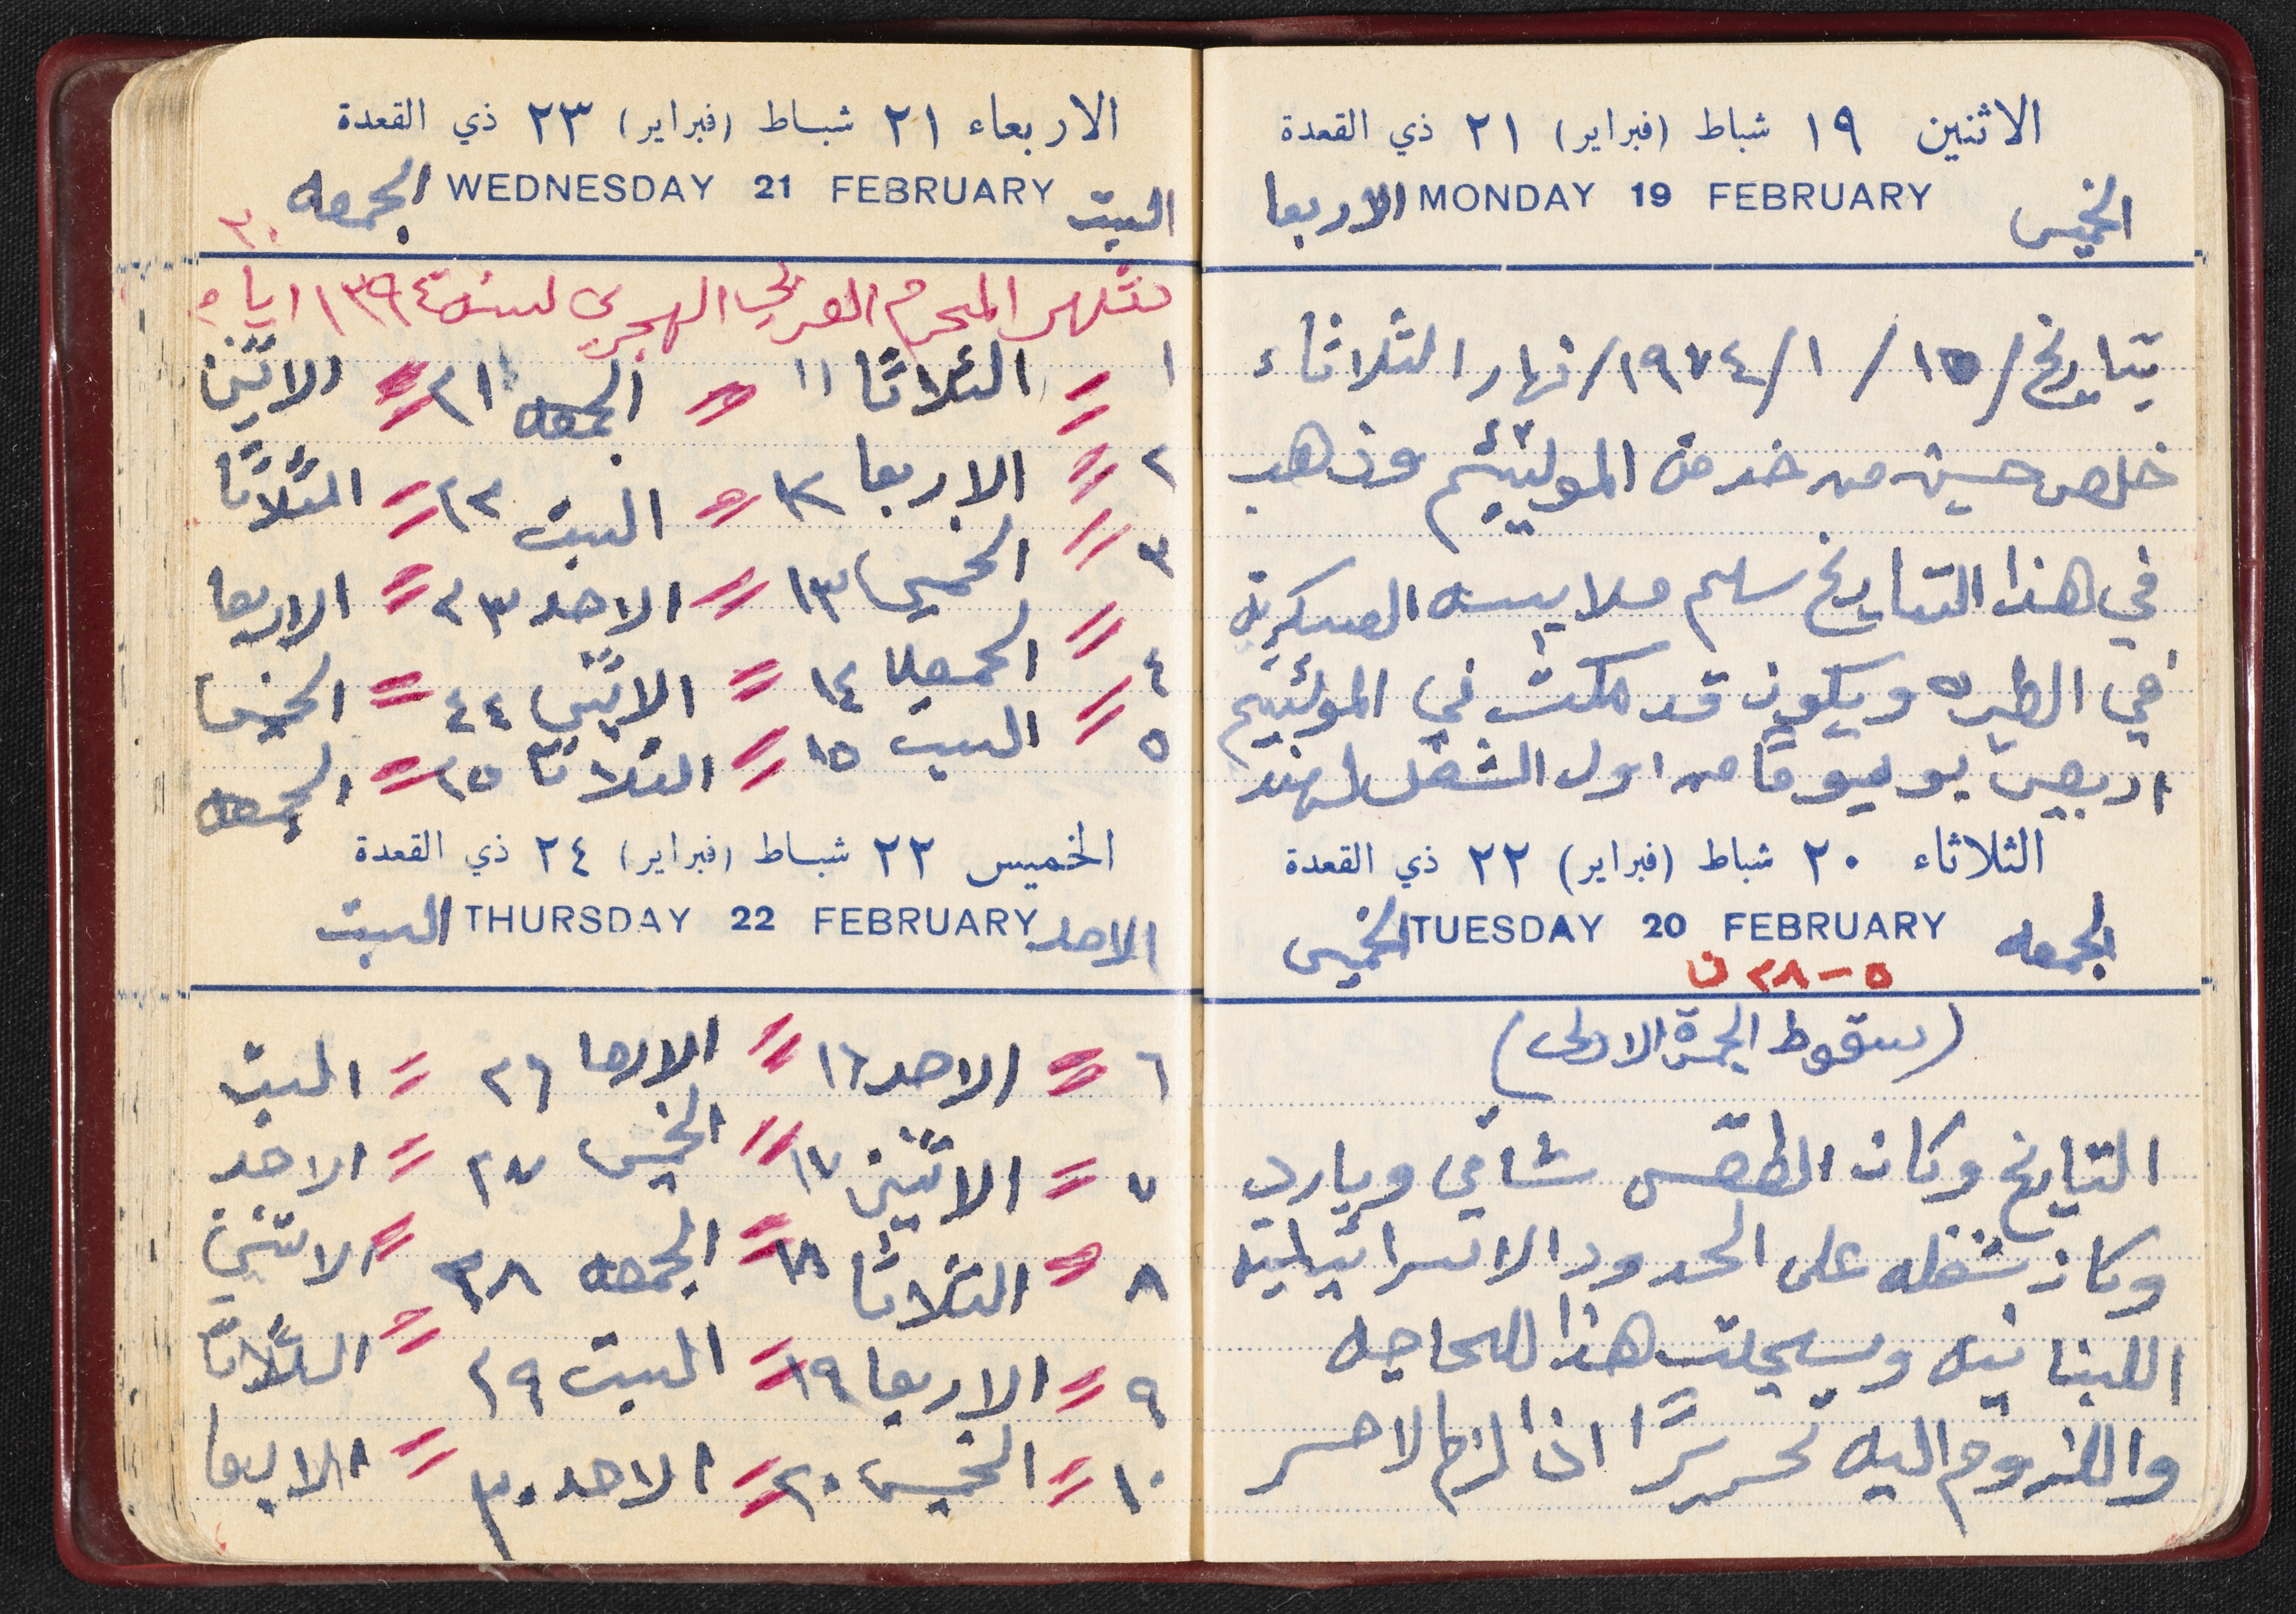 الاثنين ١٩ شباط (فبراير) ٢١ ذي القعدة
الخميس MONDAY 19 FEBRUARY الاربعا
بتاريخ/١٥/١/١٩٧٤/نهار الثلاثاء
خلص حسين من خدمة الموليئيم وذهب
في هذا التاريخ سلم ملابسه العسكرية
في الطيره ويكون قد مكث في الموليئيم
اربعين يوميوماً من اول الشغل لهذ
الثلاثاء ٢٠ شباط (فبراير) ٢٢ ذي القعدة
الجمعه TUESDAY 20 FEBRUARY الخميس
٥ - ٢٨ ن
(سقوط الجمرة الاولى)
التايخ وكان الطقس شاتي وبارد
وكان شغله على الحدود الاسرائيلية
اللبنانيه وسجلت هذا للحاجه
واللزوم اليه تحريرًا اذا لزم لاحسر
الاربعاء ٢١ شباط (فبراير) ٢٣ ذي القعدة
السبت WEDNESDAY 21 FEBRUARY الجمعه
٣٠
شهر المحرم العربي الهجري لسنة ١٣٩٤ ايام
١ = الثلاثا ١١ = الجمعه ٢١ = الاثنين
٢ = الاربعا ١٢ = السبت ٢٢ = الثلاثا
٣ = الخميس ١٣ = الاحد ٢٣ = الاربعا
٤ = الجمعه ١٤ = الاثنين ٢٤ = الخميس
٥ = السبت ١٥ = الثلاثا ٢٥ = الجمعه
الخميس ٢٢ شباط (فبراير) ٢٤ ذي القعدة
الاحد THURSDAY 22 FEBRUARY السبت
٦ = الاحد ١٦ = الاربعا ٢٦ = السبت
٧ = الاثنين ١٧ = الخميس ٢٧ = الاحد
٨ = الثلاثا ١٨ = الجمعه ٢٨ = الاثنين
٩ = الاربعا ١٩ = السبت ٢٩ = الثلاثا
١٠ = الخميس ٢٠ = الاحد ٣٠ = الاربعا